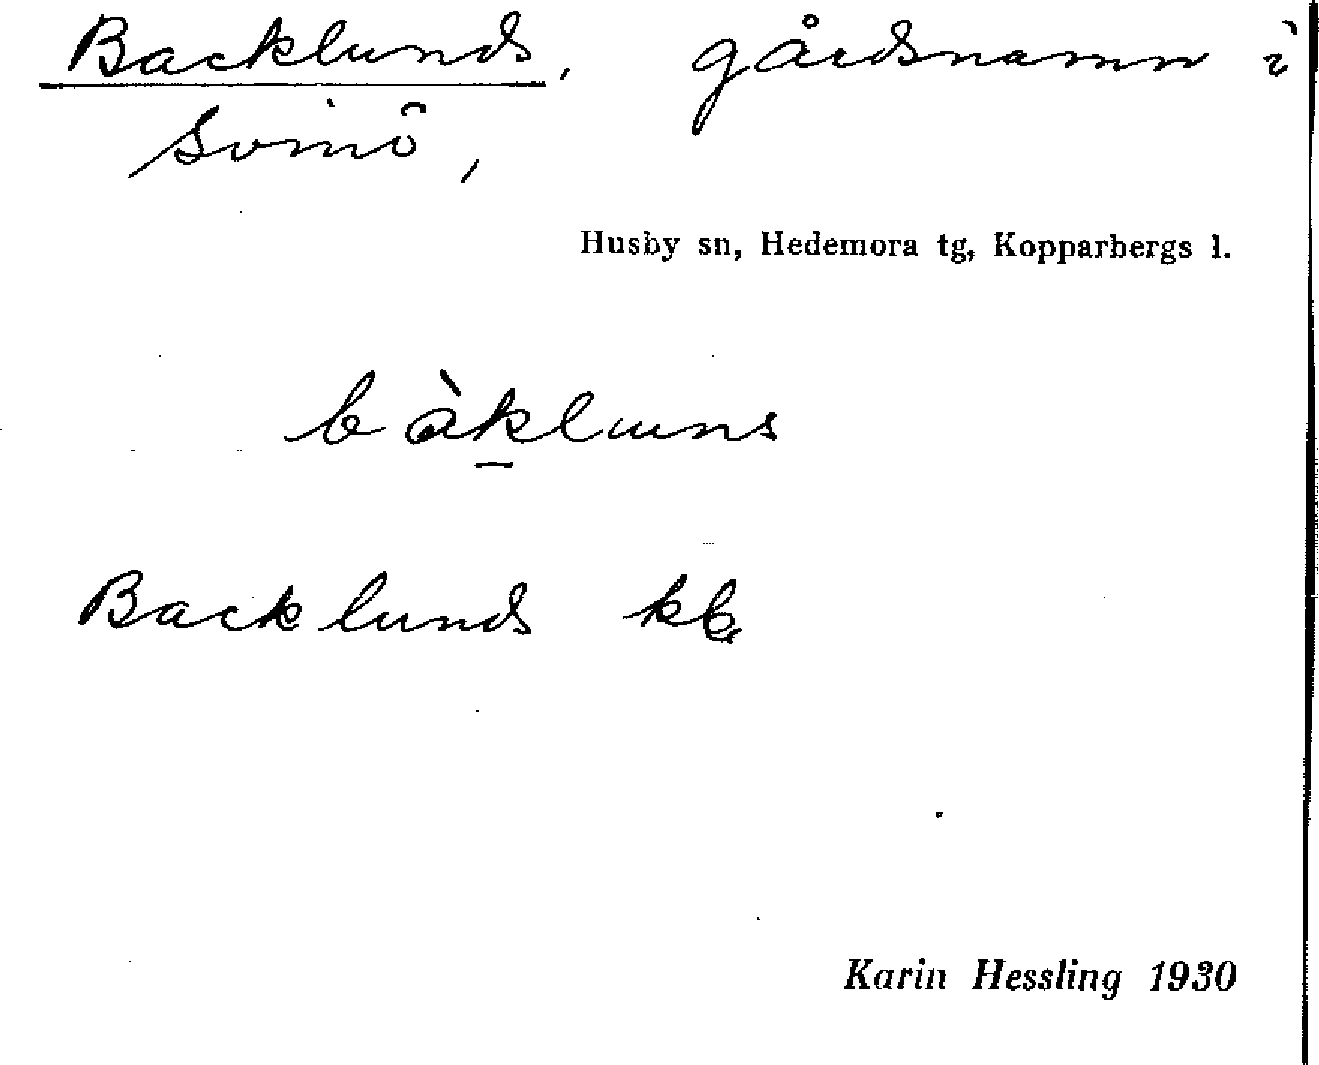 Backlunds, gårdsnamn i
Svinö,
Husby sn, Hedemora tg, Kopparbergs l.
bàkluns
Backlunds kb.
Karin Hessling 1930